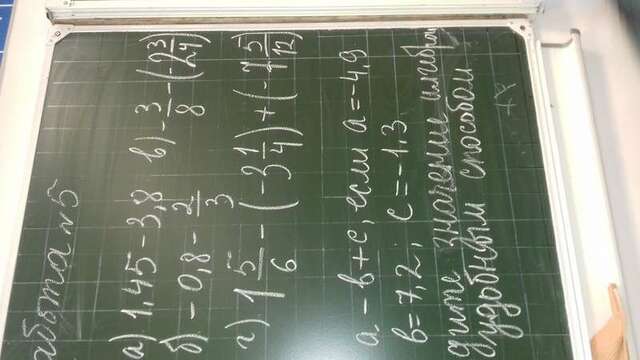 абота №5
а) 1,45 - 3,8 в) - 3/8 - (-2 3/4)
б) - 0,8 - 2/3
г) 1 5/6 - (-3 1/4) + (-7 5/12)
a - в + c, если a = -4,9
в = 7,2; c = -1,3
дите значение алгебра
удобным способом